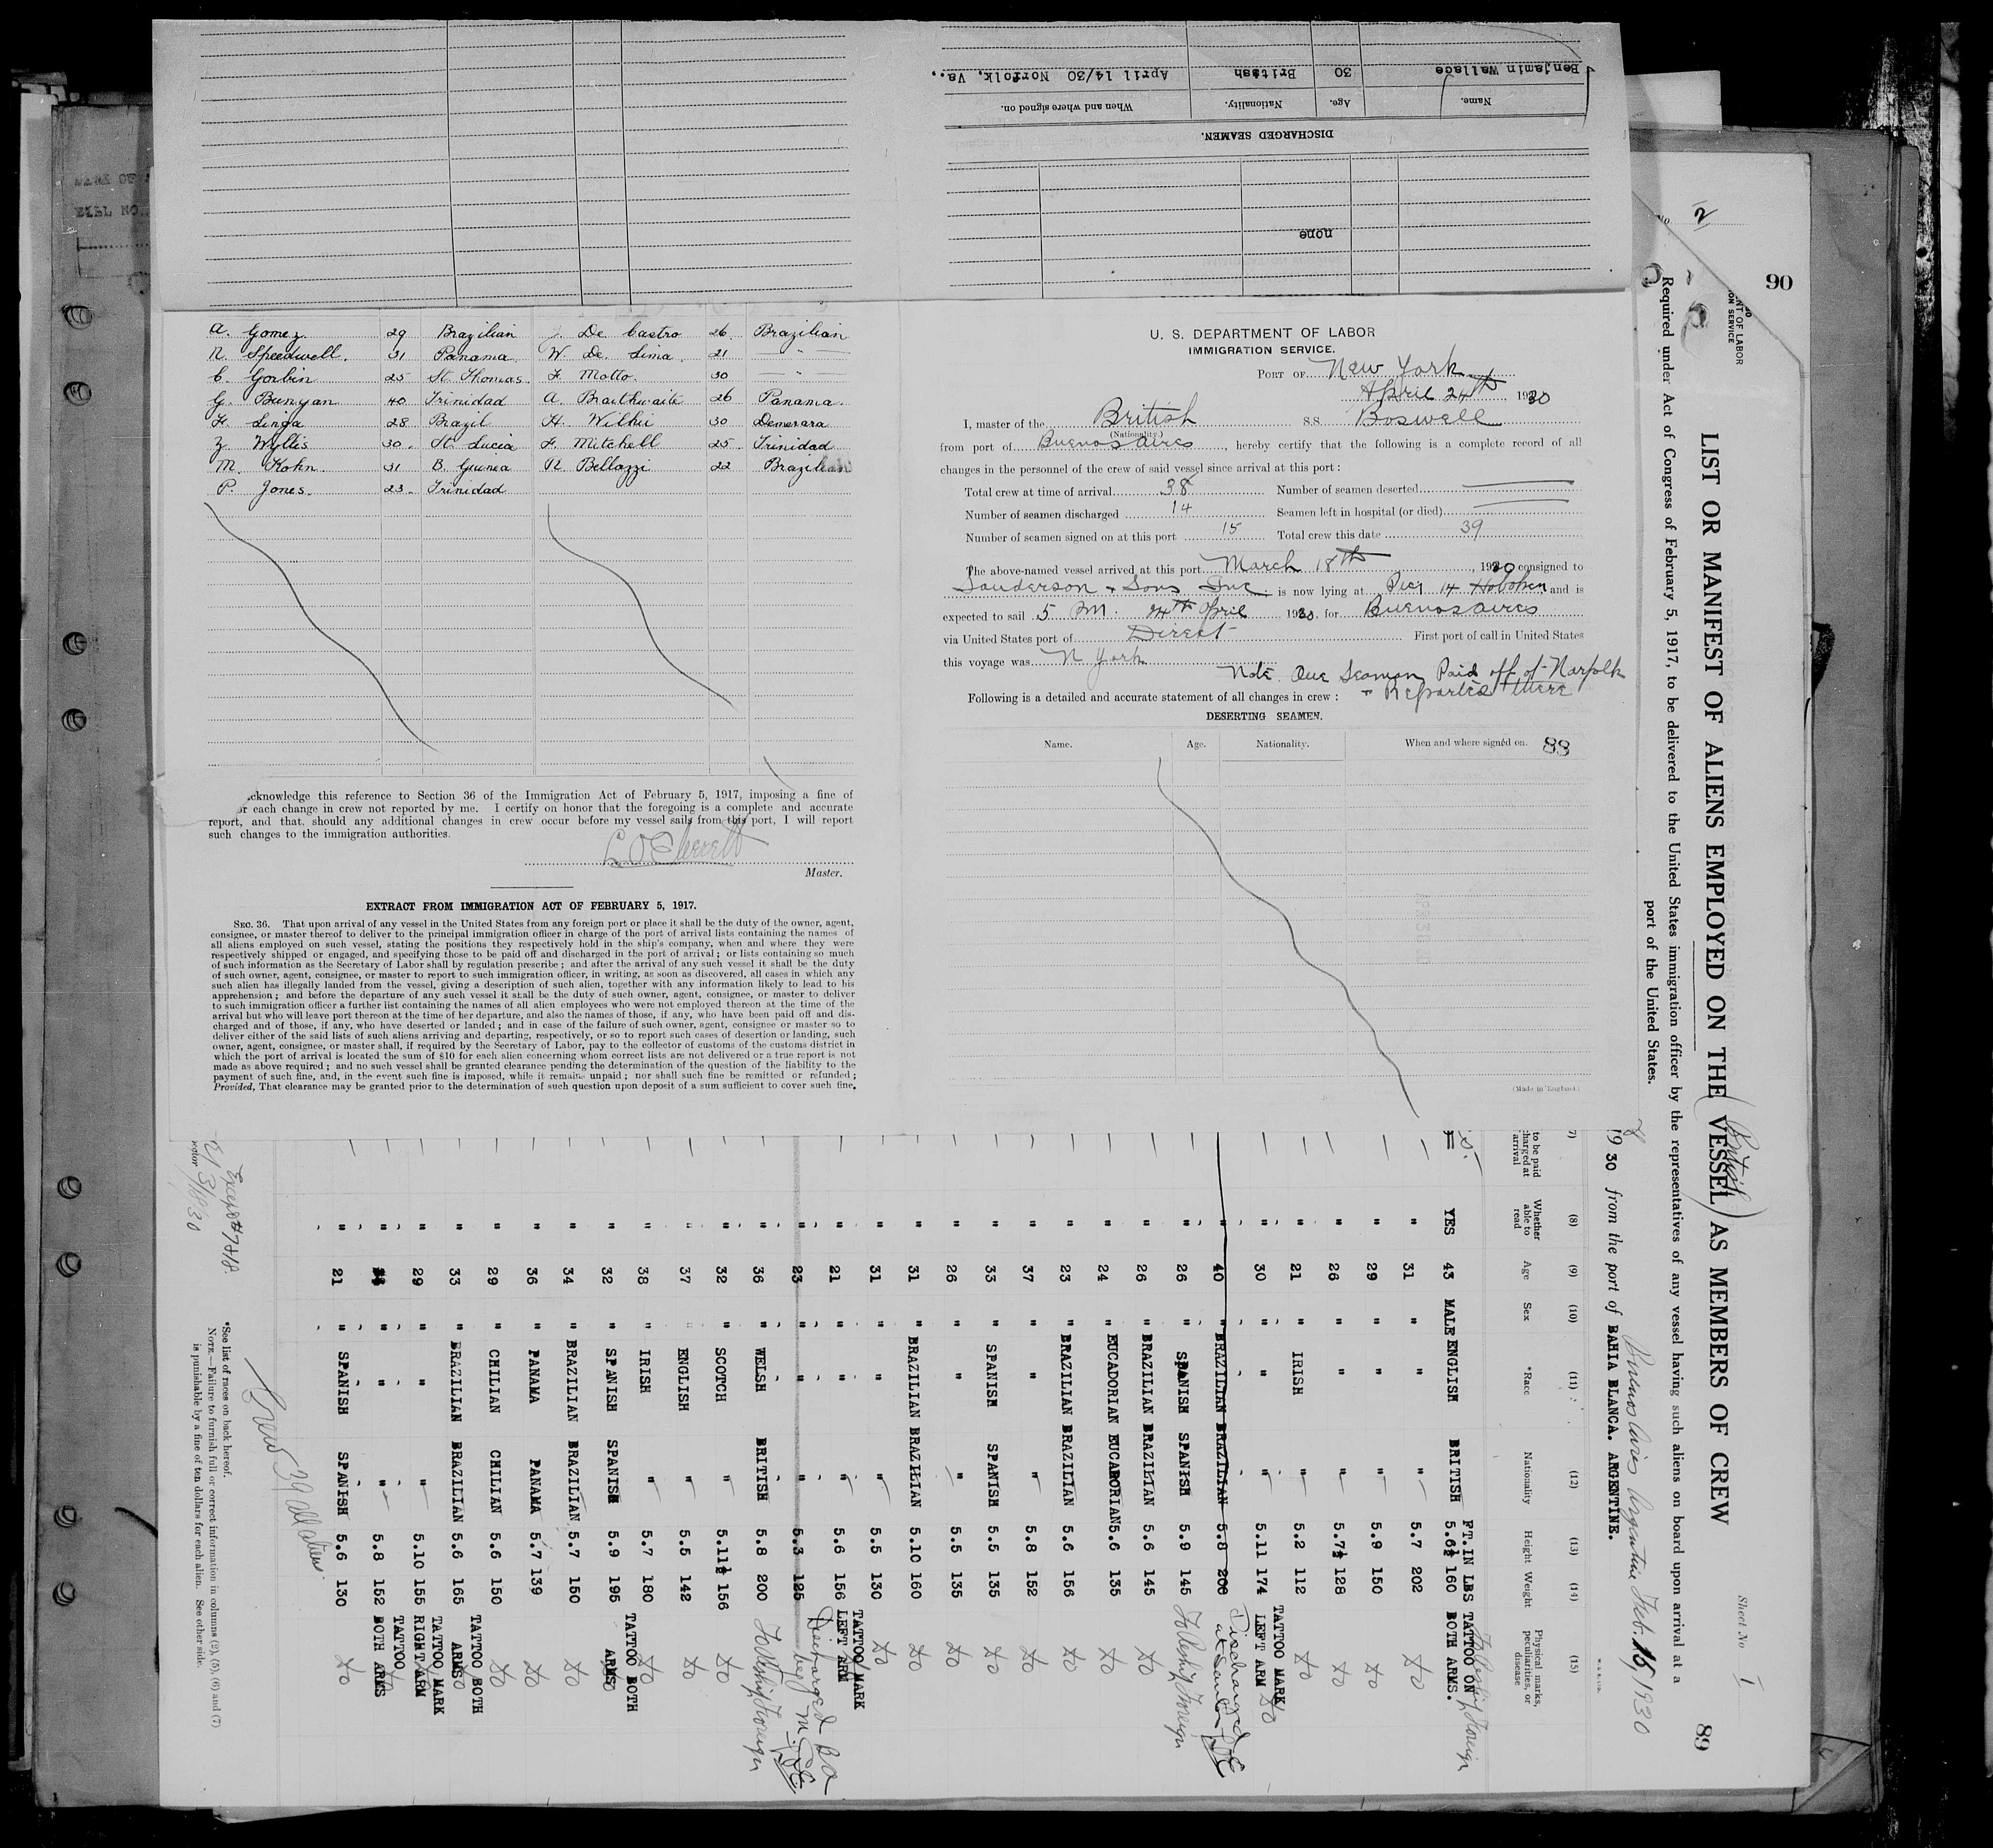 Benjamin Wallace 30 British April 14/30 Norfolk, Va.,
Name. Age. Nationality. When and where signed on.
DISCHARGED SEAMEN.
none
A. Gomez 29 Brazilian J. De Castro 26 Brazilian
N. Speedwell. 31 Panama. W. De Lima. 21 — " —
C. Gorbin 25 St. Thomas. F. Motto. 30 — " —
G. Bunyan 40 Trinidad A. Braithwaite 26 Panama.
H. Linga 28 Brazil H. Wilkie 30 Demerara
Z. Wyllis 30. St. Lucia F. Mitchell 25. Trinidad
M. Kohn 31 B. Guinea R. Bellazzi 22 Brazilian
P. Jones. 23. Trinidad
acknowledge this reference to Section 36 of the Immigration Act of February 5, 1917, imposing a fine of
or each change in crew not reported by me. I certify on honor that the foregoing is a complete and accurate
report, and that, should any additional changes in crew occur before my vessel sails from this port, I will report
such changes to the immigration authorities.
Master.
EXTRACT FROM IMMIGRATION ACT OF FEBRUARY 5, 1917.
SEC. 36. That upon arrival of any vessel in the United States from any foreign port or place it shall be the duty of the owner, agent,
consignee, or master thereof to deliver to the principal immigration officer in charge of the port of arrival lists containing the names of
all aliens employed on such vessel, stating the positions they respectively hold in the ship's company, when and where they were
respectively shipped or engaged, and specifying those to be paid off and discharged in the port of arrival; or lists containing so much
of such information as the Secretary of Labor shall by regulation prescribe; and after the arrival of any such vessel it shall be the duty
of such owner, agent, consignee, or master to report to such immigration officer, in writing, as soon as discovered, all cases in which any
such alien has illegally landed from the vessel, giving a description of such alien, together with any information likely to lead to his
apprehension; and before the departure of any such vessel it shall be the duty of such owner, agent, consignee, or master to deliver
to such immigration officer a further list containing the names of all alien employees who were not employed thereon at the time of the
arrival but who will leave port thereon at the time of her departure, and also the names of those, if any, who have been paid off and dis-
charged and of those, if any, who have deserted or landed; and in case of the failure of such owner, agent, consignee or master so to
deliver either of the said lists of such aliens arriving and departing, respectively, or so to report such cases of desertion or landing, such
owner, agent, consignee, or master shall, if required by the Secretary of Labor, pay to the collector of customs of the customs district in
which the port of arrival is located the sum of $10 for each alien concerning whom correct lists are not delivered or a true report is not
made as above required; and no such vessel shall be granted clearance pending the determination of the question of the liability to the
payment of such fine, and, in the event such fine is imposed, while it remains unpaid; nor shall such fine be remitted or refunded;
Provided, That clearance may be granted prior to the determination of such question upon deposit of a sum sufficient to cover such fine.
U. S. DEPARTMENT OF LABOR
IMMIGRATION SERVICE.
PORT OF New York
April 24th, 1930
I, master of the British S.S. Boswell
(Nationality.)
from port of Buenos Aires, hereby certify that the following is a complete record of all
changes in the personnel of the crew of said vessel since arrival at this port:
Total crew at time of arrival 38 Number of seamen deserted —
Number of seamen discharged 14 Seamen left in hospital (or died) —
Number of seamen signed on at this port 15 Total crew this date 39
The above-named vessel arrived at this port March 18th, 1930 consigned to
Sanderson & Sons Inc. is now lying at Pier 14 Hoboken and is
expected to sail 5 PM. 24th April 1930, for Buenos Aires
via United States port of Direct First port of call in United States
this voyage was N York
Note One Seaman Paid off at Norfolk
& Reported there
Following is a detailed and accurate statement of all changes in crew:
DESERTING SEAMEN.
Name. Age. Nationality. When and where signed on. 88
(Made in England.)
90
2
LIST OR MANIFEST OF ALIENS EMPLOYED ON THE VESSEL AS MEMBERS OF CREW
(British)
Sheet No. 1
89
Required under Act of Congress of February 5, 1917, to be delivered to the United States immigration officer by the representatives of any vessel having such aliens on board upon arrival at a
port of the United States.
Buenos Aires Argentine Feb. 15, 1930
1930 from the port of BAHIA BLANCA. ARGENTINE.
(8) (9) (10) (11) (12) (13) (14) (15)
to be paid
charged at
arrival
Whether able to read Age Sex *Race Nationality Height Weight Physical marks, peculiarities, or disease
FT.IN LBS
YES 43 MALE ENGLISH BRITISH 5.6½ 160 TATTOO ON BOTH ARMS. To Reship Foreign
" 31 " " " 5.7 202 do
" 29 " " " 5.9 150 do
" 26 " " " 5.7½ 128 do
" 21 " IRISH " 5.2 112 do
" 30 " " " 5.11 174 TATTOO MARK LEFT ARM do
" 40 " BRAZILIAN BRAZILIAN 5.8 200 Discharged at Santos
" 26 " SPANISH SPANISH 5.9 145 To Reship Foreign
" 26 " BRAZILIAN BRAZILIAN 5.6 145 do
" 24 " EUCADORIAN EUCADORIAN 5.6 135 do
" 23 " BRAZILIAN BRAZILIAN 5.6 156 do
" 37 " " " 5.8 152 do
" 33 " SPANISH SPANISH 5.5 135 do
" 26 " " " 5.5 135 do
" 31 " BRAZILIAN BRAZILIAN 5.10 160 do
" 31 " " " 5.5 130 do
" 21 " " " 5.6 156 TATTOO MARK LEFT ARM
" 23 " " " 5.3 125 Discharged BA
" 36 " WELSH BRITISH 5.8 200 To Reship Foreign
" 32 " SCOTCH " 5.11½ 156 do
" 37 " ENGLISH " 5.5 142 do
" 38 " IRISH " 5.7 180 do
" 32 " SPANISH SPANISH 5.9 195 TATTOO BOTH ARMS do
" 34 " BRAZILIAN BRAZILIAN 5.7 150 do
" 36 " PANAMA PANAMA 5.7 139 do
" 29 " CHILIAN CHILIAN 5.6 150 do
" 33 " BRAZILIAN BRAZILIAN 5.6 165 TATTOO BOTH ARMS do
" 29 " " " 5.10 155 TATTOO MARK RIGHT ARM do
" " " " 5.8 152 TATTOO BOTH ARMS do
" 21 " SPANISH SPANISH 5.6 130 do
Crew 39 all aliens
*See list of races on back hereof.
NOTE.—Failure to furnish full or correct information in columns (2), (5), (6) and (7)
is punishable by a fine of ten dollars for each alien. See other side.